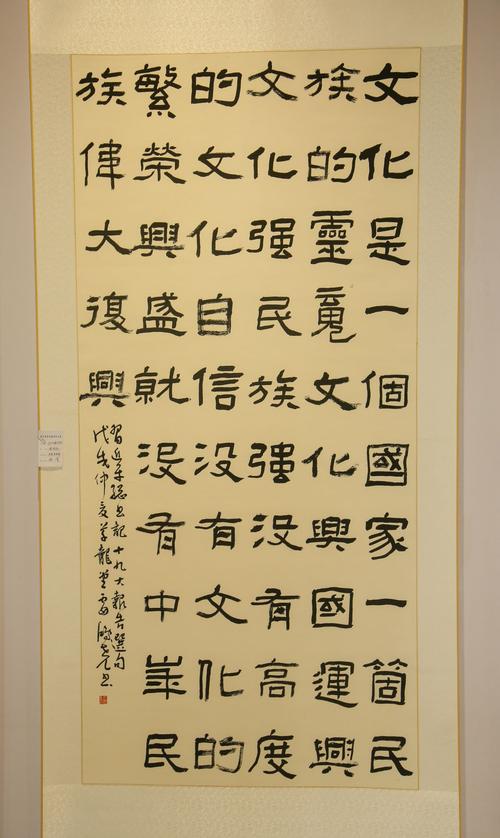 文化是一個國家一箇民
族的靈魂文化興國運興
文化强民族强没有高度
的文化自信没有文化的
繁榮興盛就没有中華民
族偉大復興
習近平總書記十九大報告選句
戊戌仲夏草龍堂雷書